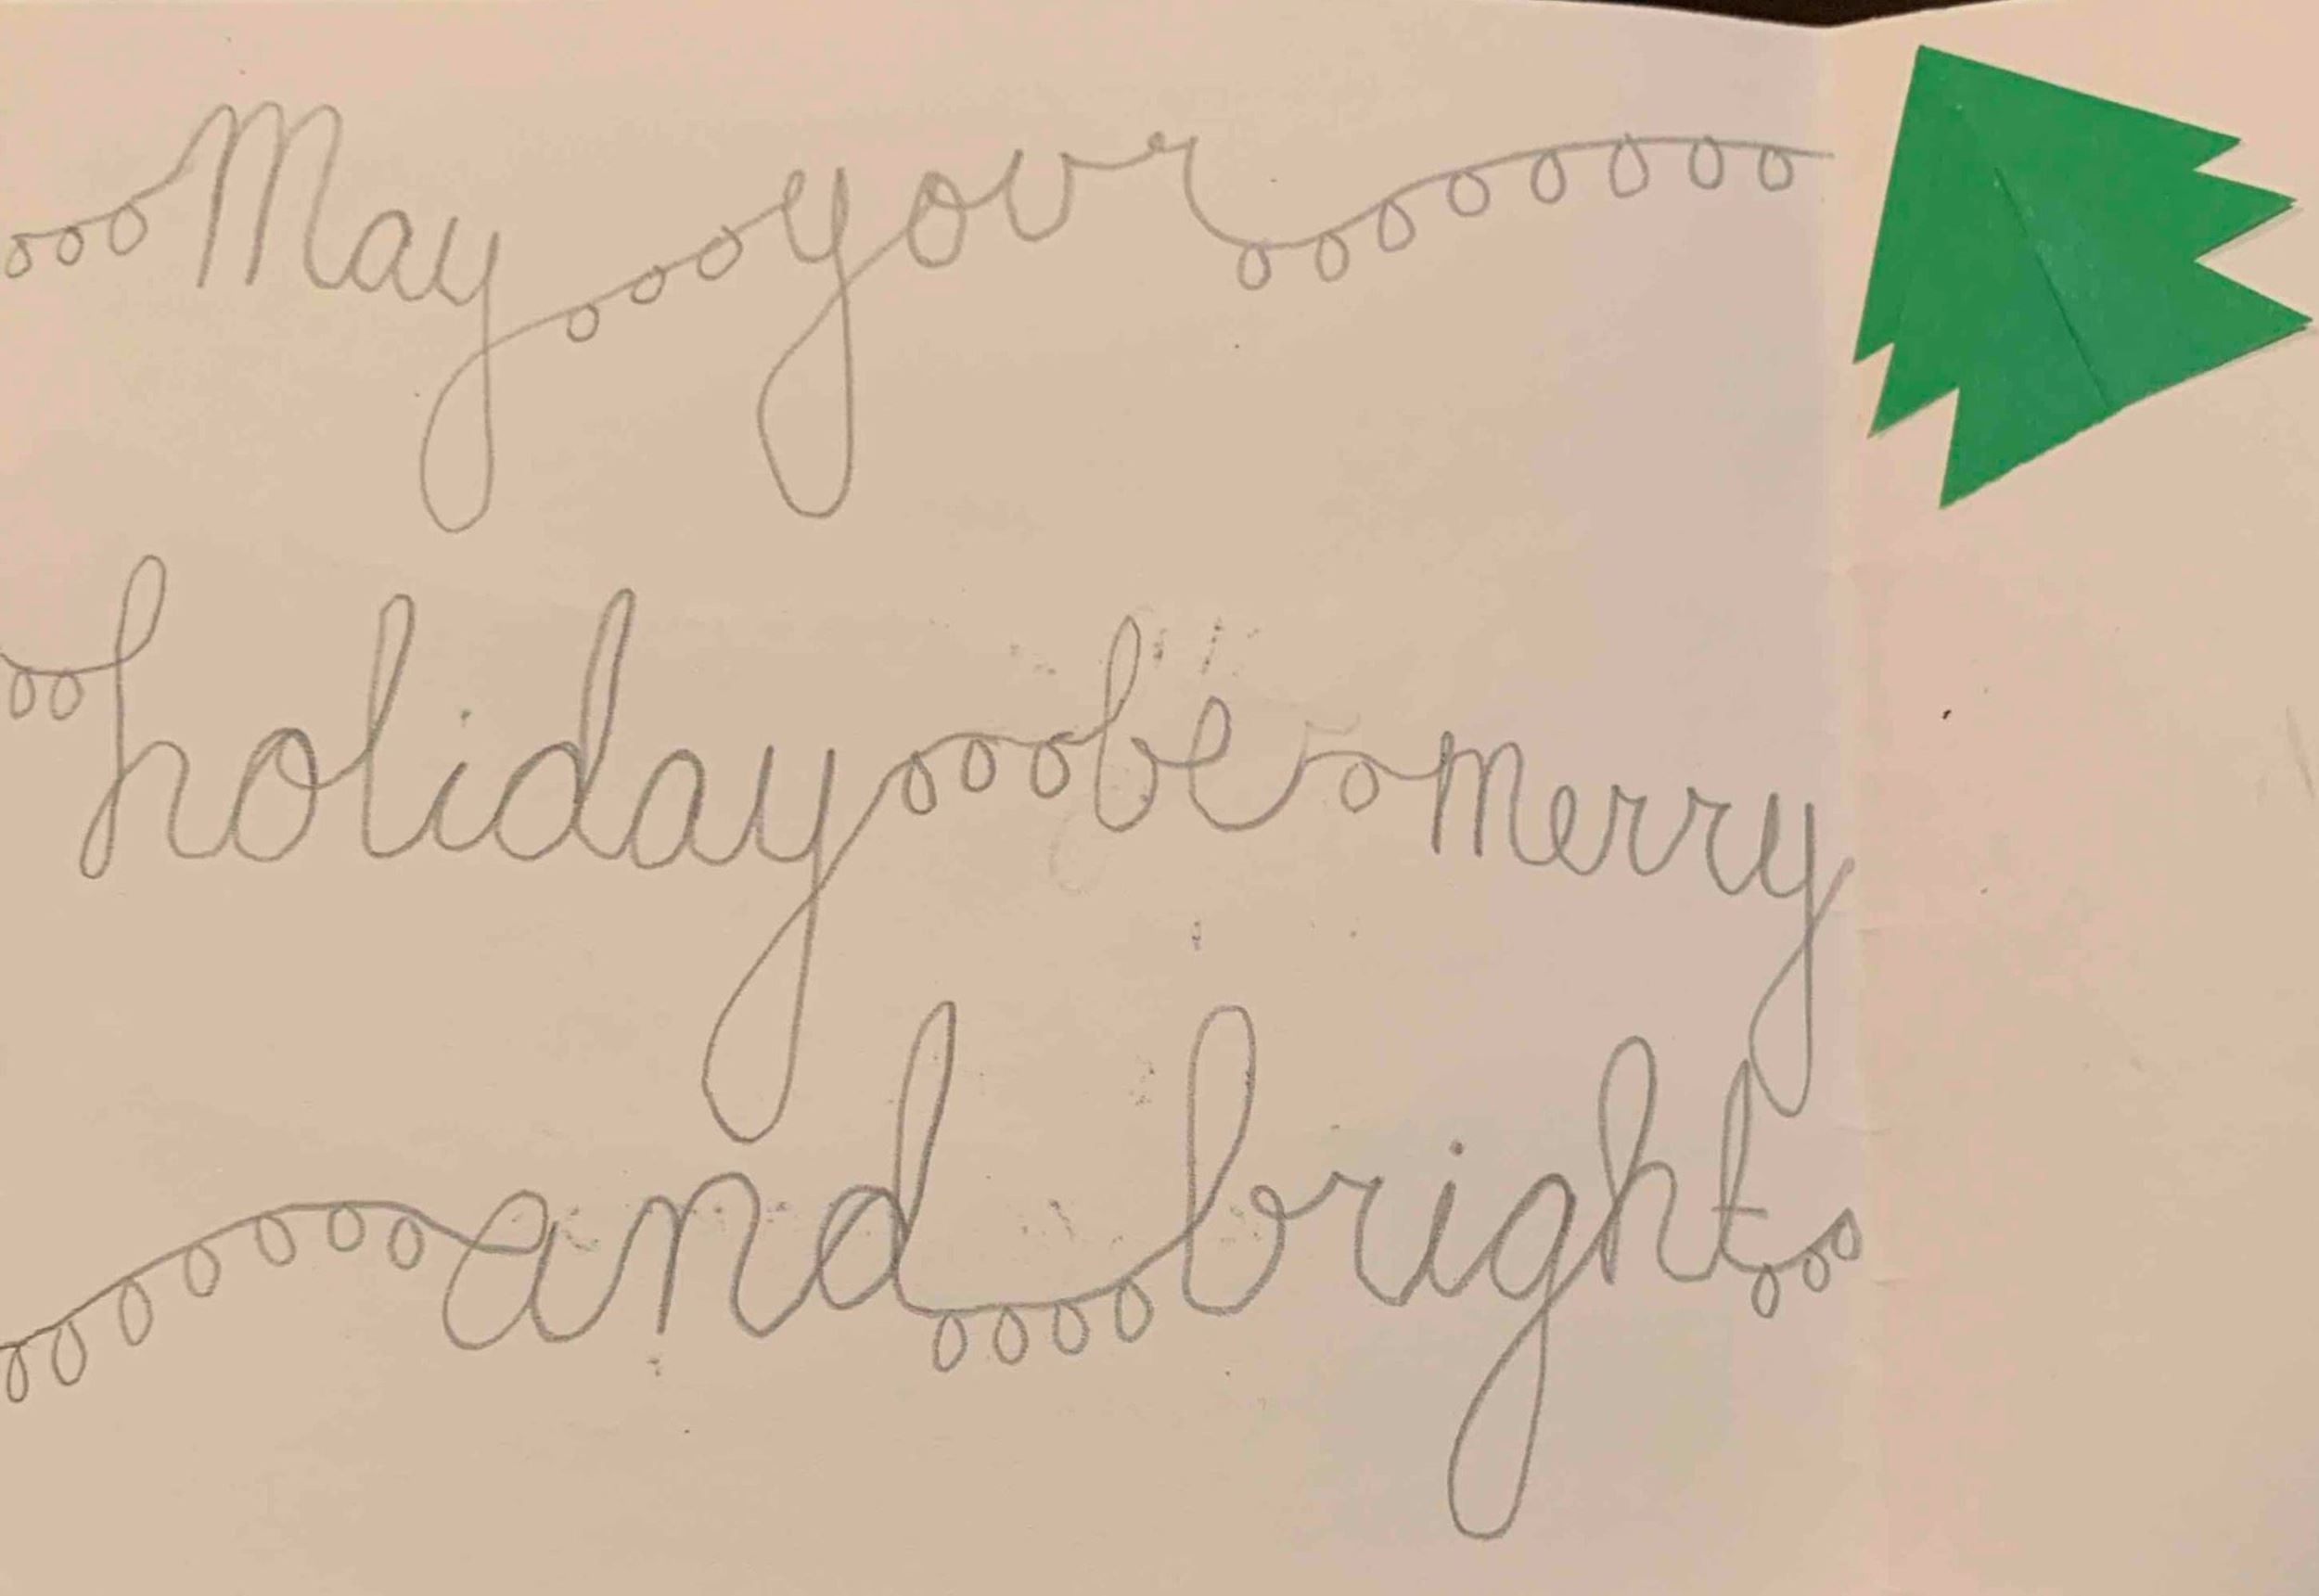 May your
holiday be merry
and bright